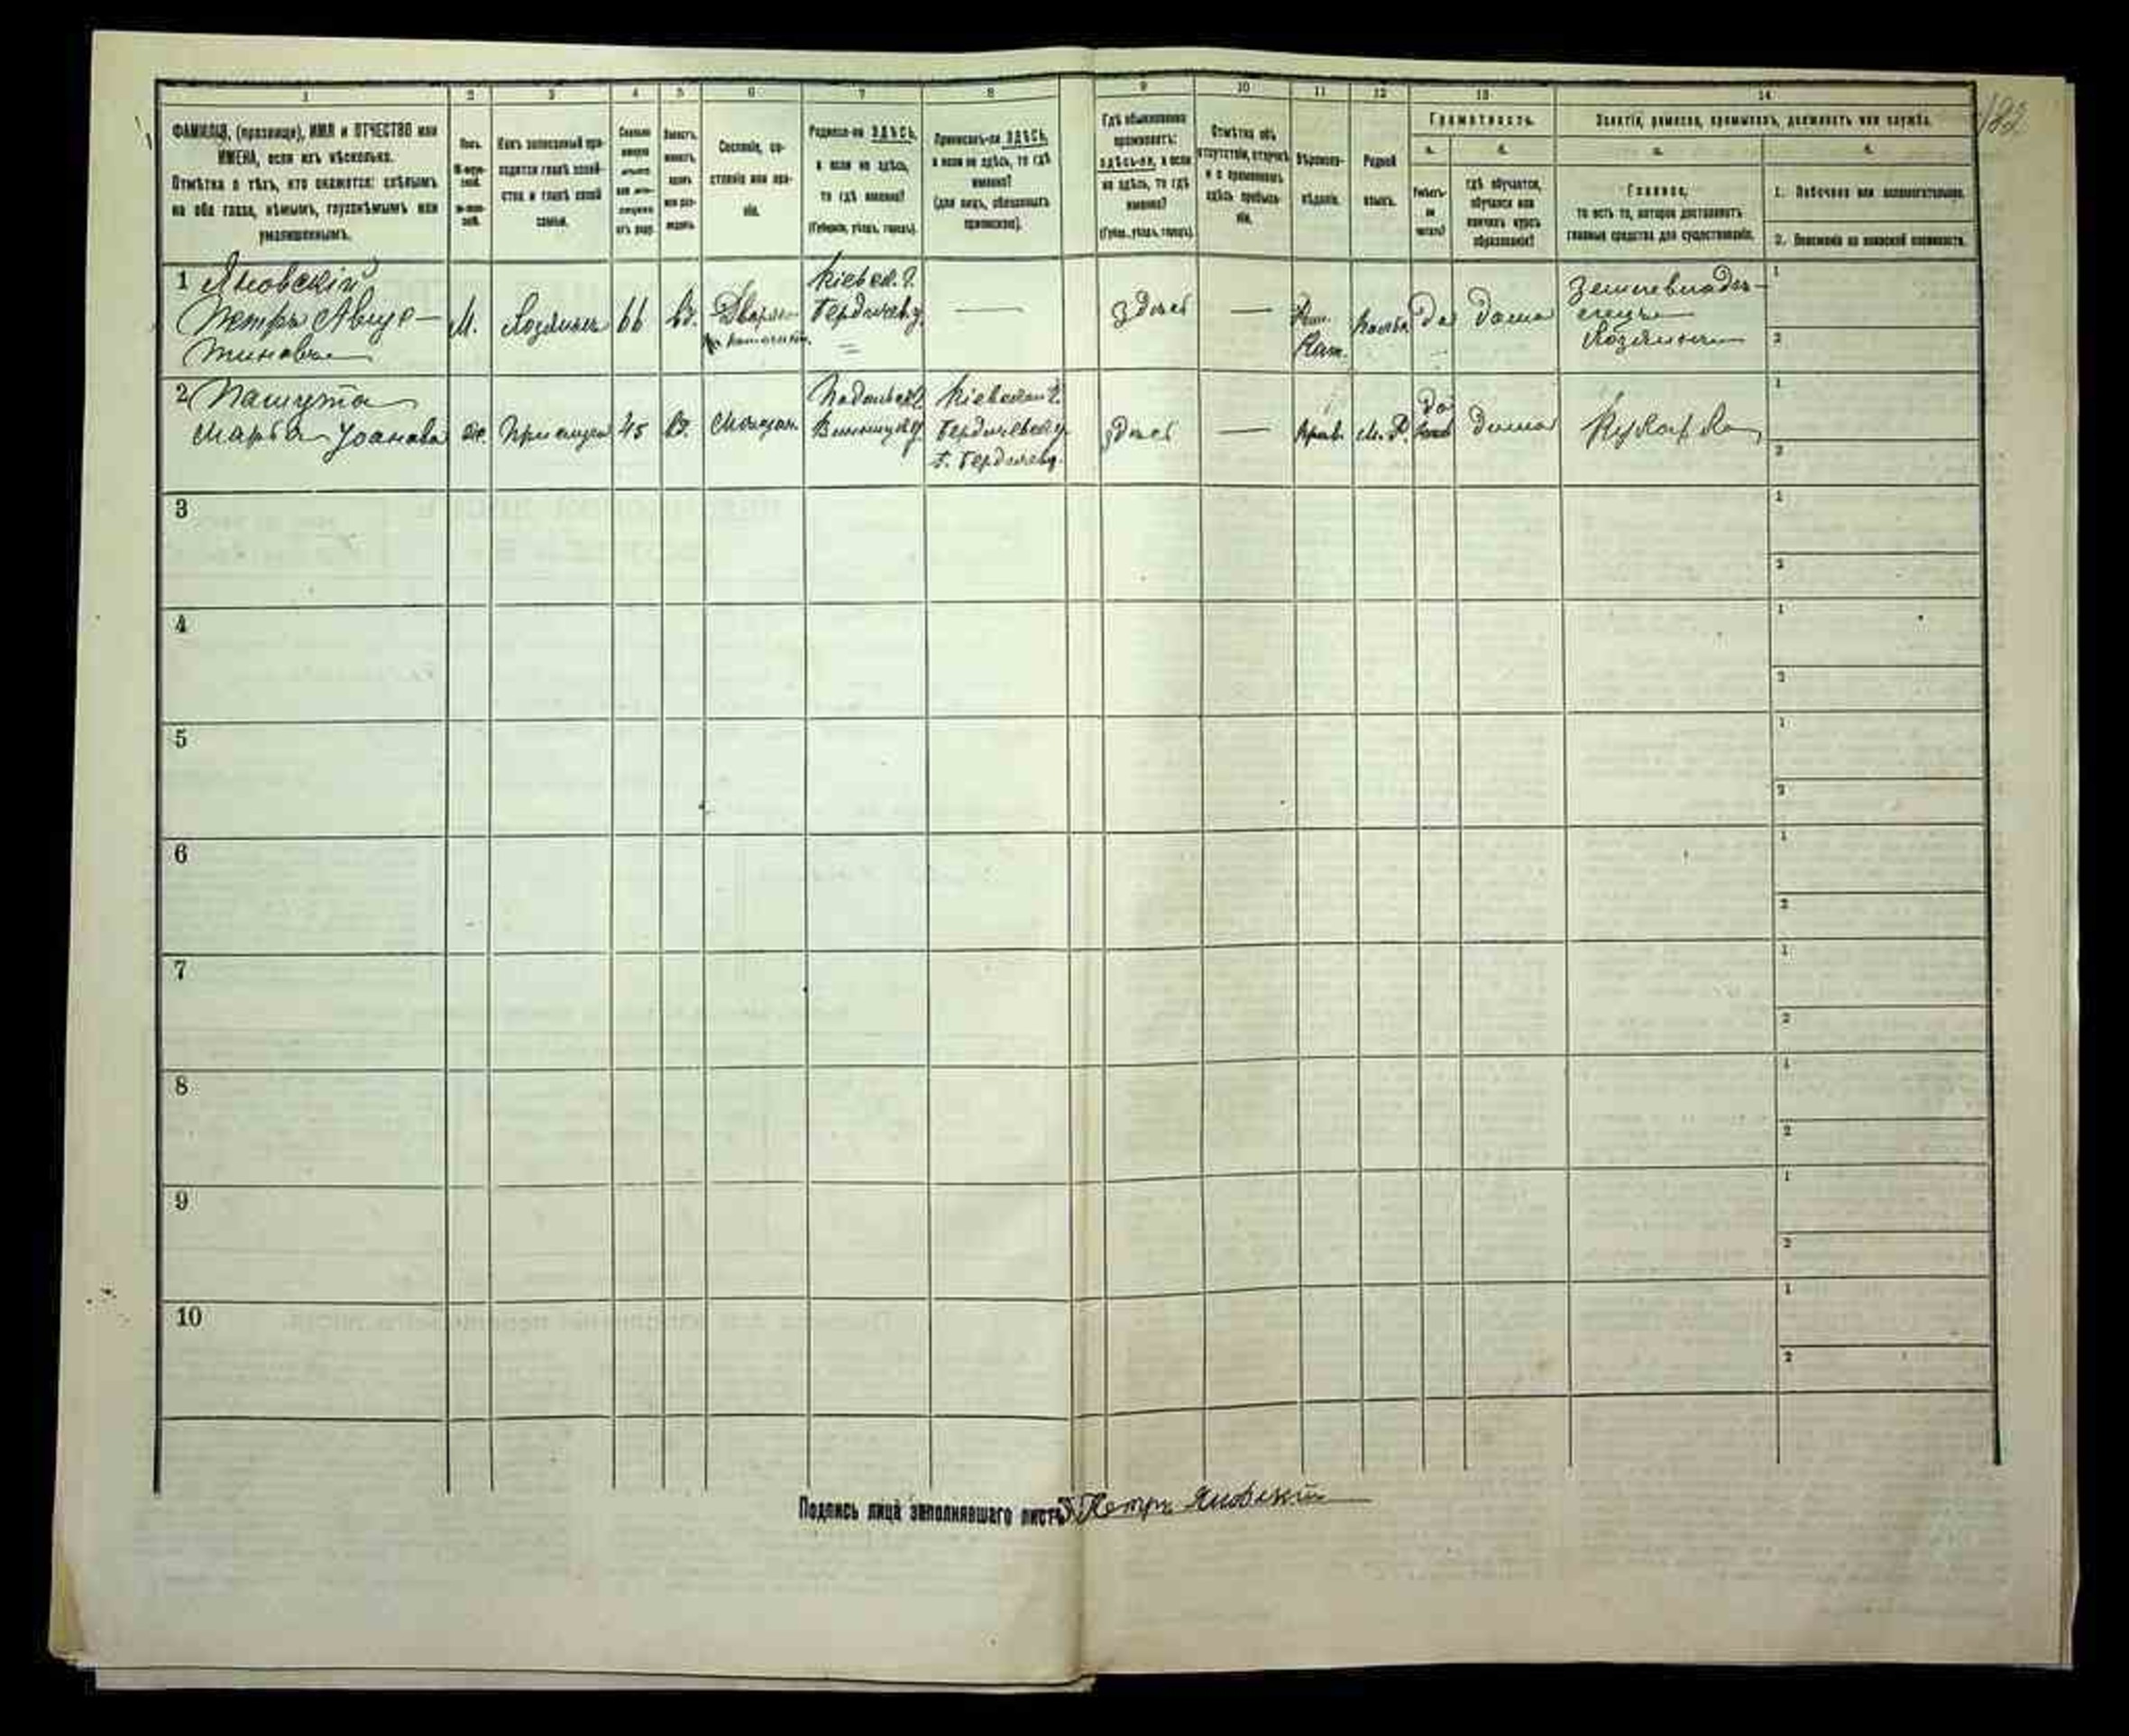 1 2 3 4 5 6 7 8 9 10 11 12 13 14
182
ФАМИЛІЯ, (прозвище), ИМЯ и ОТЧЕСТВО или
ИМЕНА, если ихъ нѣсколько.
Отмѣтка о тѣхъ, кто окажется: слѣпымъ
на оба глаза, нѣмымъ, глухонѣмымъ или
умалишеннымъ.
Полъ.
Какъ записанный при-
ходится главѣ хозяй-
ства и главѣ своей
семьи.
Сословіе, со-
стояніе или зва-
ніе.
Родился-ли ЗДѢСЬ,
а если не здѣсь,
то гдѣ именно?
(Губернія, уѣздъ, городъ).
Приписанъ-ли ЗДѢСЬ,
а если не здѣсь, то гдѣ
именно?
(для лицъ, обязанныхъ
припискою).
Гдѣ обыкновенно
проживаетъ:
здѣсь-ли, а если
не здѣсь, то гдѣ
именно?
(Губер., уѣздъ, городъ).
Отмѣтка объ
отсутствіи, отлучкѣ
и о временномъ
здѣсь пребыва-
ніи.
Вѣроиспо-
вѣданіе.
Родной
языкъ.
Грамотность.
а. б.
Умѣетъ-
ли
читать?
гдѣ обучается,
обучался или
кончилъ курсъ
образованія?
Занятіе, ремесло, промыселъ, должность или служба.
а. б.
Главное,
то есть то, которое доставляетъ
главныя средства для существованія.
1. Побочное или вспомогательное.
2. Положеніе по воинской повинности.
1 Яновскій
Петръ Авгус-
тиновъ
М. Хозяинъ 66 вд.
Кіевск. г.
Бердичев у.
— здѣсь — Рим.
Кат.
да дома
Землевладѣ-
лецъ
Хозяинъ
2 Пашута
Марфа Іоанова
ж. Прислуга 45 вд. Мѣщан.
Подольск. г.
Винницк у.
Кіевской г.
Бердичевск у.
г. Бердичевъ
здѣсь — Прав. М. Р. да
дома
Кухарка
3
4
5
6
7
8
9
10
Подпись лица заполнявшаго листъ Петръ Яновскій